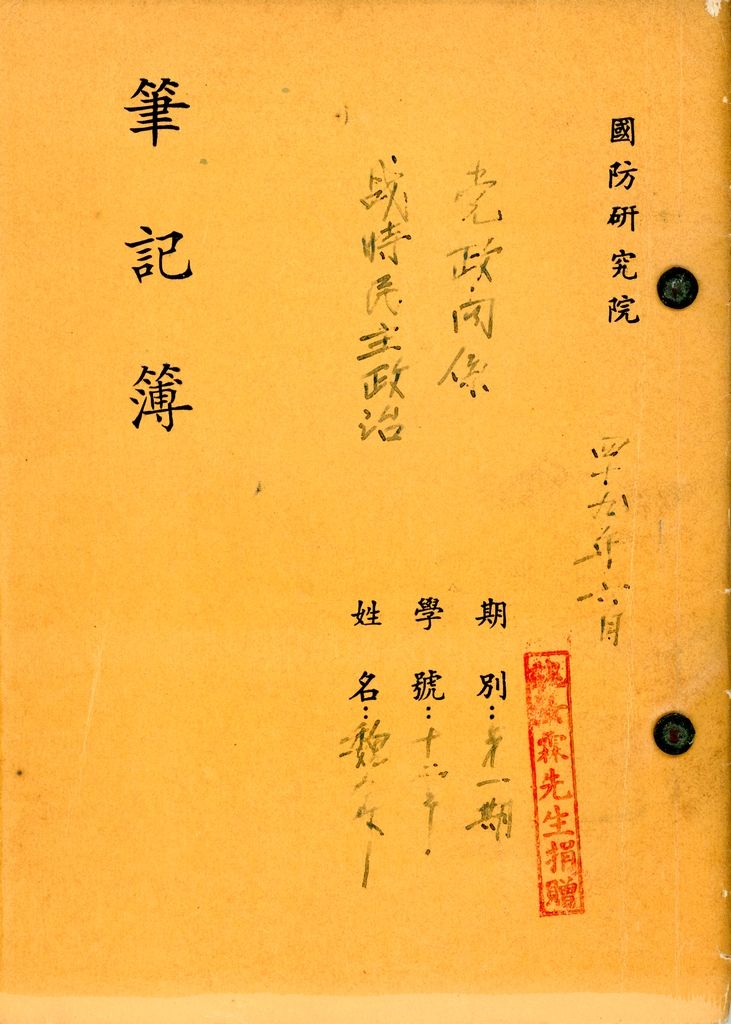 國防研究院
四十九年六月
党政関係
战時民主政治
筆記簿
期別：第一期
學號：十二号
姓名：魏
汝霖先生捐贈